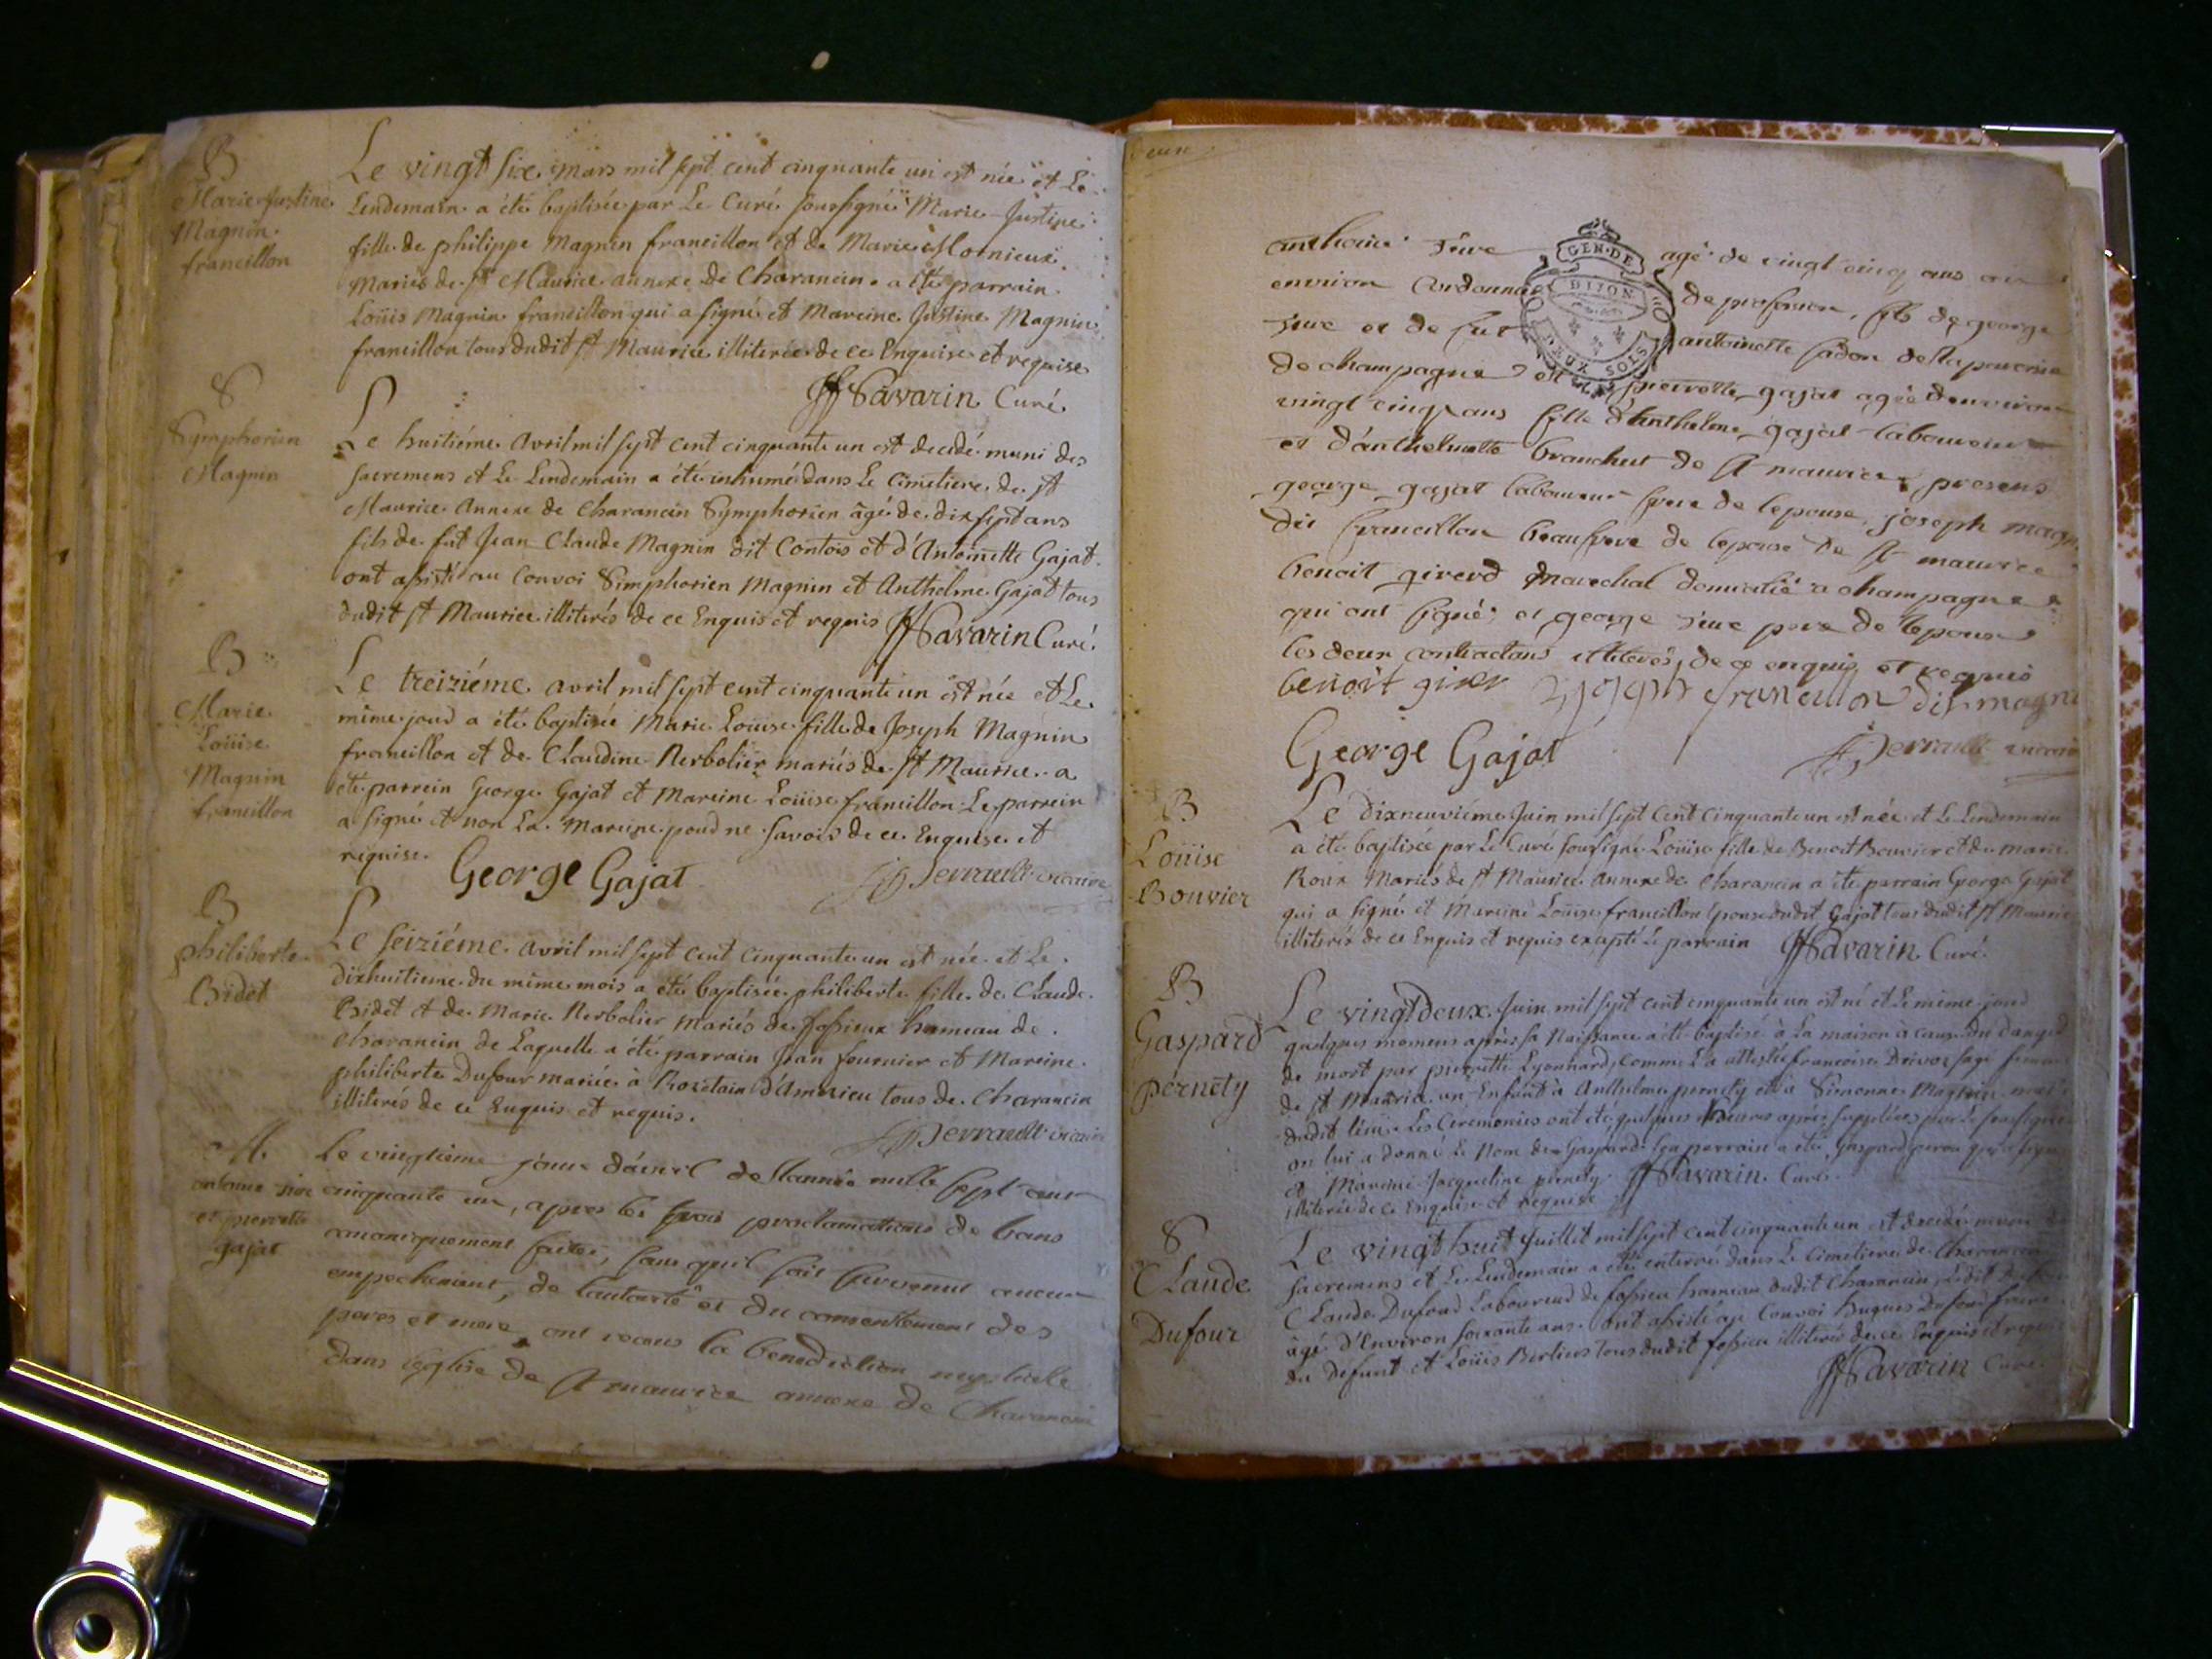 B
Marie Justine
Magnin
francillon
Le vingt six mars mil sept cent cinquante un est née et Le
Lendemain a été baptisée par Le Curé soussigné Marie Justine
fille de philippe Magnin francillon et de Marie Mornieux
Mariés de St Maurice annexe de Charancin a été parrain
Loüis Magnin francillon qui a signé et Mareine Justine Magnin
francillon tous dudit St Maurice illiterée de ce Enquise et requise
Savarin Curé
S
Symphorien
Magnin
Le huitiéme avril mil sept cent cinquante un est decedé muni des
sacremens et Le Lendemain a été inhumé dans Le Cimetiere de St
Maurice Annexe de Charancin Symphorien âgé de dix sept ans
fils de fut Jean Claude Magnin dit Contois et d'Antoinette Gajat
ont assisté au Convoi Simphorien Magnin et Anthelme Gajat tous
dudit St Maurice illiterés de ce Enquis et requis Savarin Curé
B
Marie
Loüise
Magnin
francillon
Le treiziéme avril mil sept cent cinquante un est née et Le
même jour a été baptisée Marie Loüise fille de Joseph Magnin
francillon et de Claudine Berbolier mariés de St Maurice a
été parrein George Gajat et Mareine Loüise francillon Le parrein
a signé et non La Mareine pour ne savoir de ce Enquise et
requise.
George Gajat Perrault vicaire
B
philiberte
Bidet
Le seiziéme avril mil sept cent cinquante un est née et Le
dixhuitieme du même mois a été baptisée philiberte fille de Claude
Bidet et de Marie Berbolier Mariés de fossieux hameau de
Charancin de Laquelle a été parrain Jean fournier et Mareine
philiberte Dufour mariée à Rossetain d'Amesieu tous de Charancin
illiterés de ce Enquis et requis.
Perrault vicaire
M
antoine
et pierrette
gajat
Le vingtieme jour d'avril de l'année mille sept cent
cinquante un, apres les trois proclamations de bans
canoniquement faites, sans qu'il soit survenu aucun
empechement, de l'autorité et du consentement des
peres et mere, ont recus la benediction nuptialle
dans l'eglise de St maurice annexe de Charancin
agé de vingt cinq ans ou
GEN·DE
DIJON
DEUX SOLS
environ Cordonnier de profession, fils de george
et de fut antoinette
de champagne et pierrette gajat agée denviron
vingt cinq ans fille d'anthelme gajat laboureur
et d'anthelmette branchut de St maurice presens
george gajat laboureur frere de lepouse, joseph magnin
dit francillon beaufrere de lepouse de St maurice
benoit girerd marechal domicilié a champagne
qui ont signé et george pere de lepoux
les deux contractans illiterés de ce enquis et requis
benoit girer joseph francillon dit magnin
George Gajat Perrault vicaire
B
Loüise
Bouvier
Le dixneuviéme Juin mil sept cent cinquante un est née et Le Lendemain
a été baptisée par Le Curé soussigné Loüise fille de Benoit Bouvier et de marie
Roux Mariés de St Maurice annexe de Charancin a été parrain George Gajat
qui a signé et Mareine Loüise francillon Epouse dudit Gajat tous dudit St Maurice
illiterés de ce Enquis et requis excepté Le parrain Savarin Curé
B
Gaspard
pernety
Le vingtdeux Juin mil sept cent cinquante un est né et Le même jour
quelques momens après sa Naissance a été baptisé à La maison à cause du danger
de mort par pierrette Lyonnard, comme L'a attestée francoise Drivor sage femme
de St Maurice un Enfant à Anthelme pernety et à Simonne Magnin mariés
dudit Lieu Les Ceremonies ont été quelques heures après suppléées par Le soussigné
on lui a donné Le Nom de Gaspard son parrain a été Gaspard qui a signé
et Mareine Jacqueline pernety Savarin Curé
illiterée de ce Enquise et requise
S
Claude
Dufour
Le vingt huit Juillet mil sept cent cinquante un est decedé muni des
sacremens et Le Lendemain a été enterré dans Le Cimetiere de Charancin
Claude Dufour Laboureur de fossieu hameau dudit Charancin
âgé d'Environ soixante ans. ont assisté au Convoi hugues Dufour frere
du defunt et Loüis Berlioz tous dudit fossieu illiterés de ce Enquis et requis
Savarin Curé